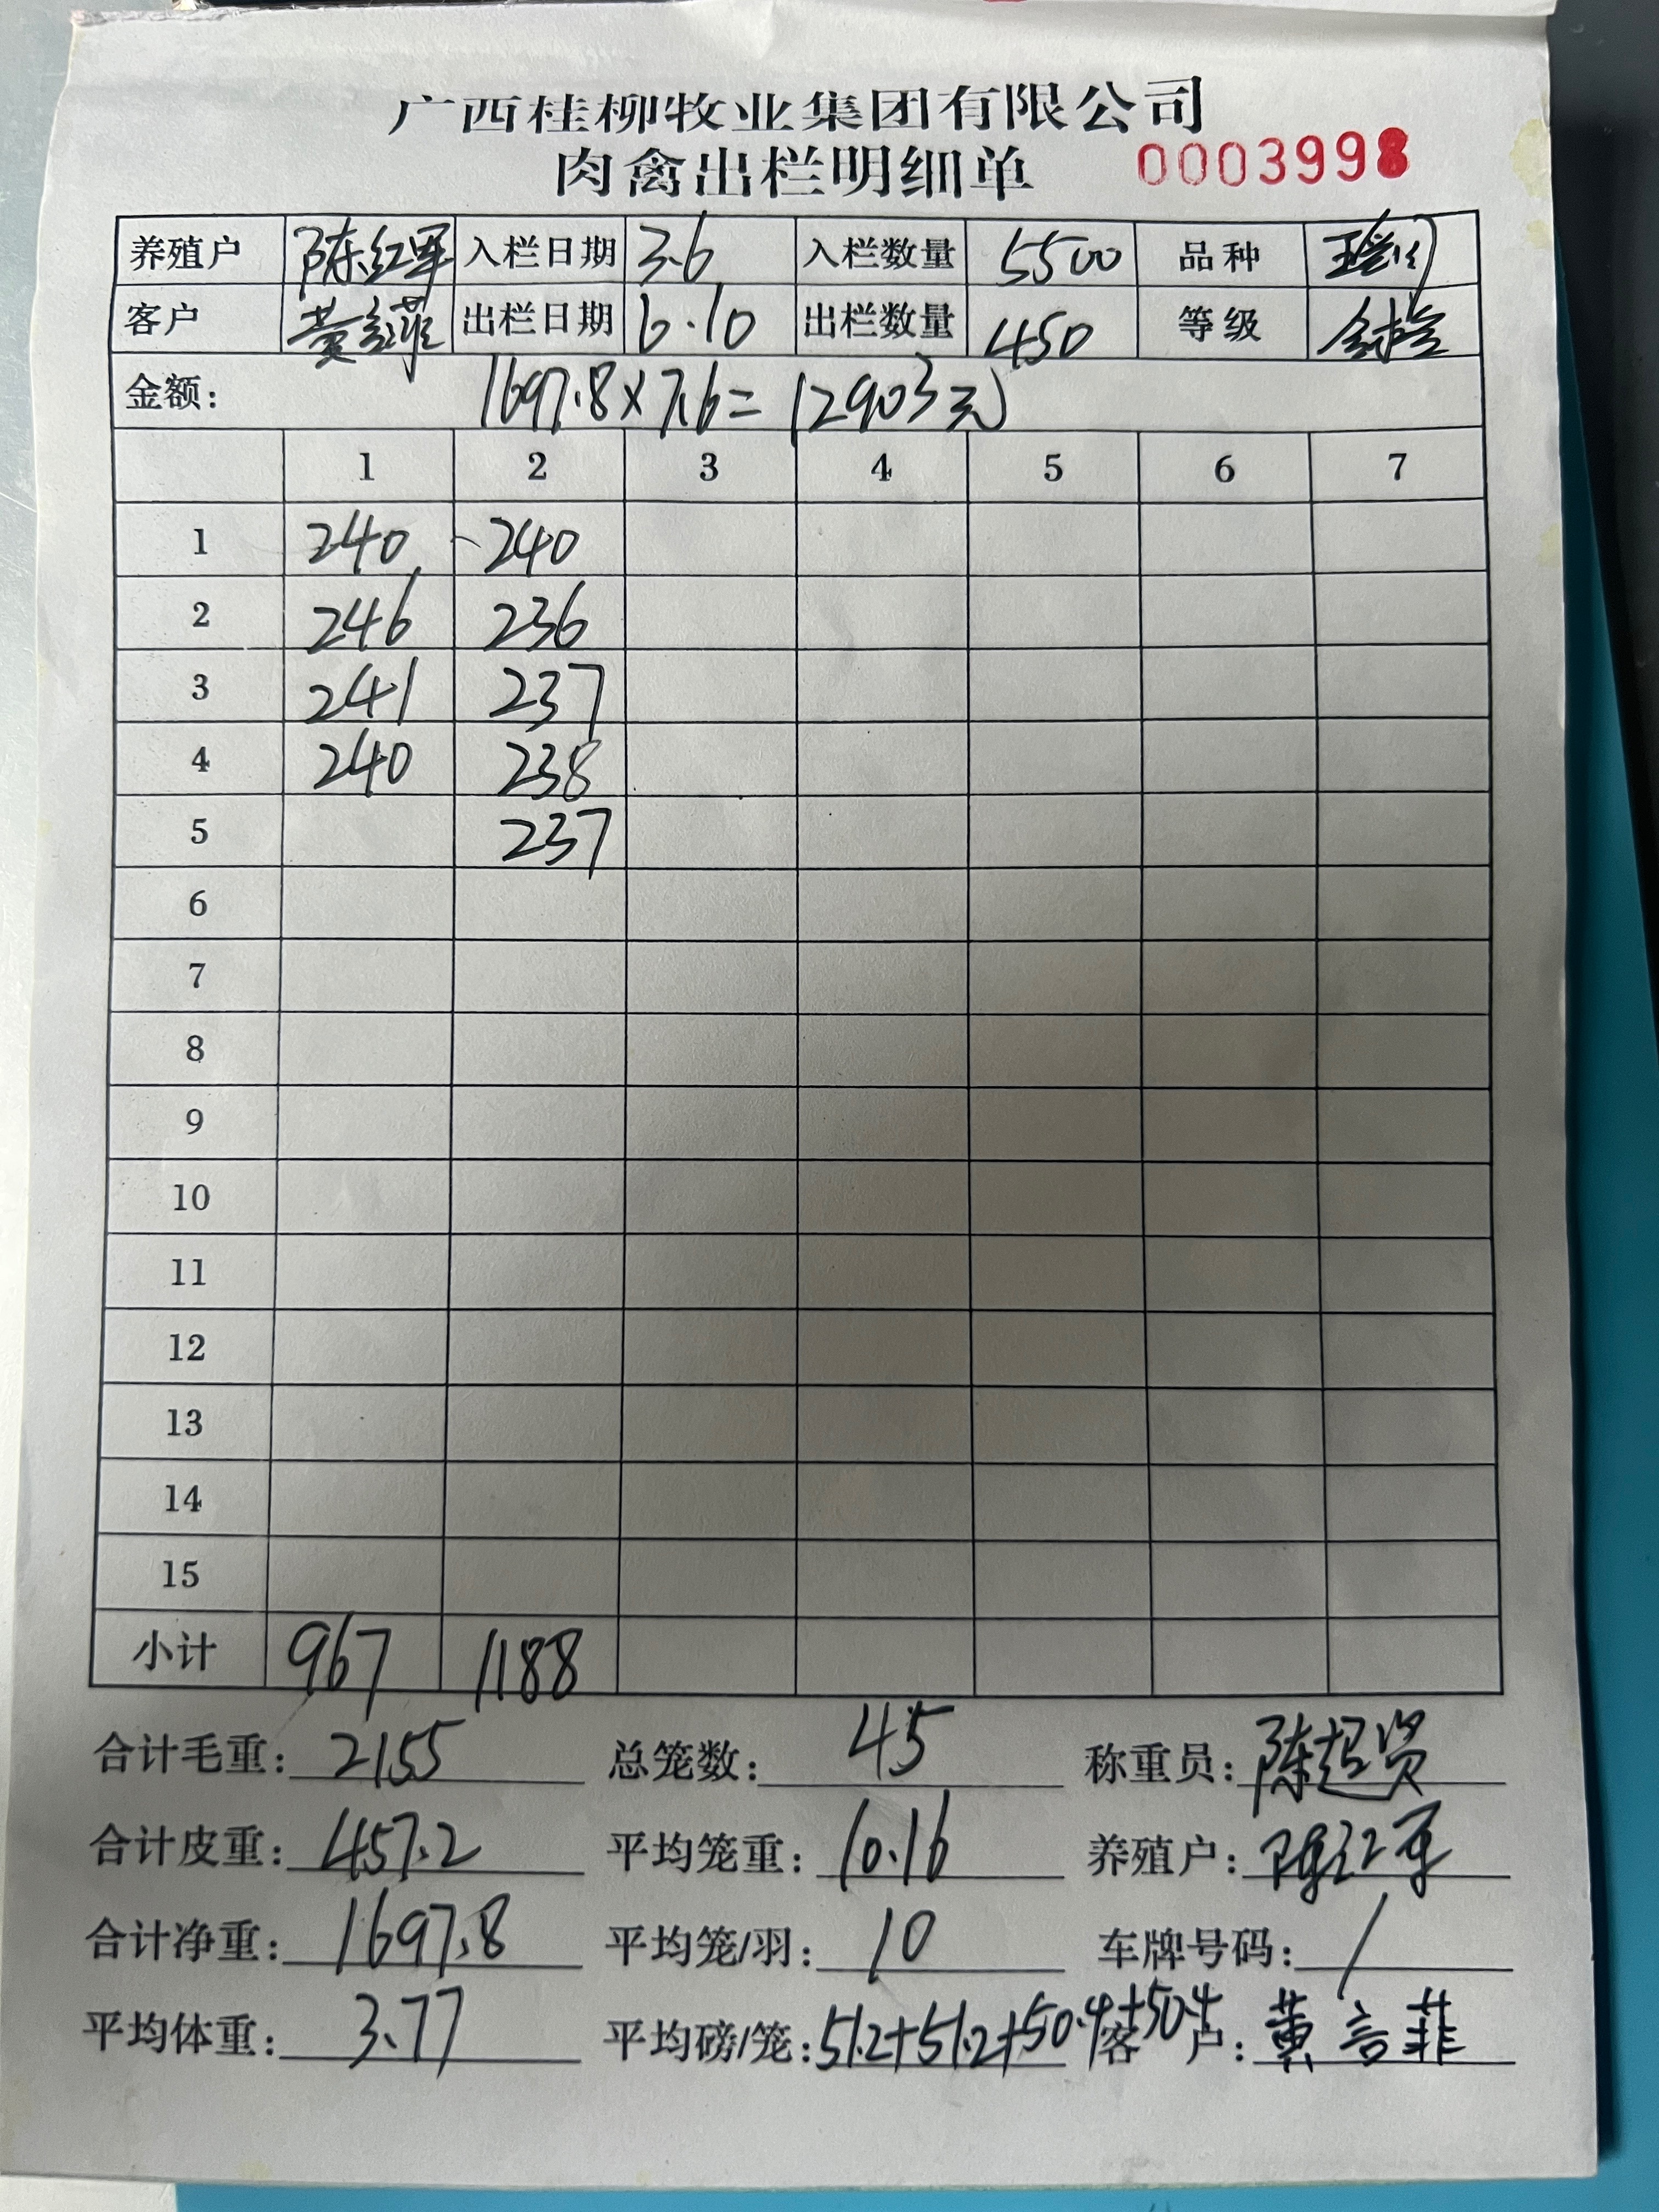 广西桂柳牧业集团有限公司
肉禽出栏明细单 0003998
养殖户 陈红军 入栏日期 3.6 入栏数量 5500 品种
客户 黄言菲 出栏日期 6.10 出栏数量 450 等级
金额： 1697.8×7.6=12903元
1 2 3 4 5 6 7
1 240 240
2 246 236
3 241 237
4 240 238
5 237
6
7
8
9
10
11
12
13
14
15
小计 967 1188
合计毛重：2155 总笼数：45 称重员：陈超贤
合计皮重：457.2 平均笼重：10.16 养殖户：陈红军
合计净重：1697.8 平均笼/羽：10 车牌号码：/
平均体重：3.77 平均磅/笼：51.2+51.2+50.4+50.4 客户：黄言菲